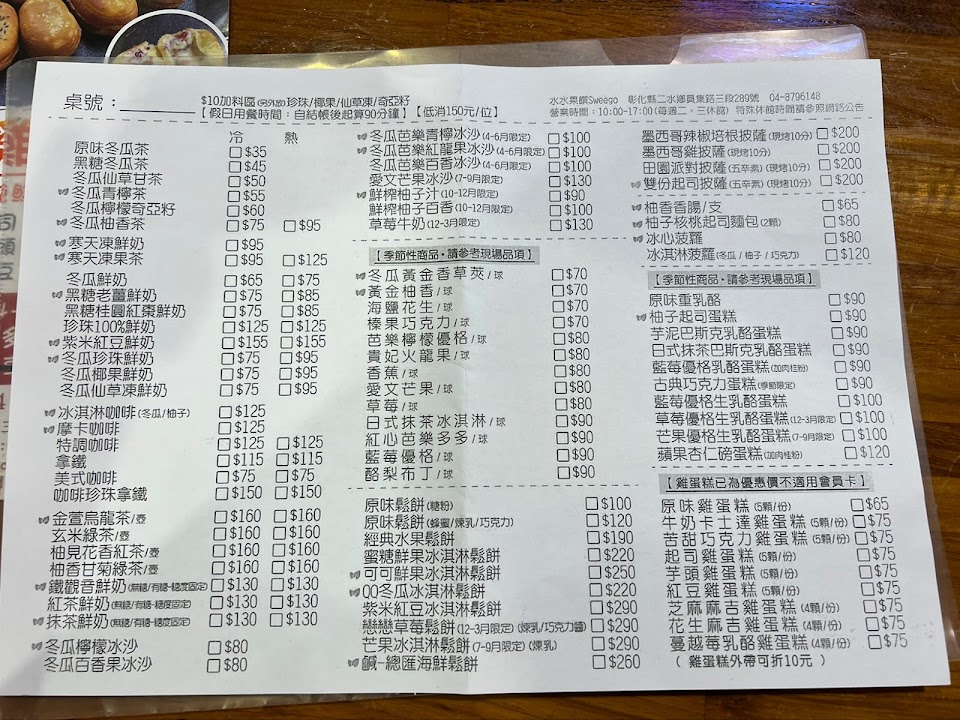 桌號：
$10加料區(另外加)珍珠/椰果/仙草凍/奇亞籽
【假日用餐時間：自結帳後起算90分鐘】【低消150元/位】
水水果饌Sweego 彰化縣二水鄉員集路三段289號 04-8796148
營業時間：10:00-17:00(每週二、三休館) 特殊休館時間請參照網路公告
冷 熱
原味冬瓜茶 □$35
黑糖冬瓜茶 □$45
冬瓜仙草甘茶 □$50
冬瓜青檸茶 □$55
冬瓜檸檬奇亞籽 □$60
冬瓜柚香茶 □$75 □$95
寒天凍鮮奶 □$95
寒天凍果茶 □$95 □$125
冬瓜鮮奶 □$65 □$75
黑糖老薑鮮奶 □$75 □$85
黑糖桂圓紅棗鮮奶 □$75 □$85
珍珠100%鮮奶 □$125 □$125
紫米紅豆鮮奶 □$155 □$155
冬瓜珍珠鮮奶 □$75 □$95
冬瓜椰果鮮奶 □$75 □$95
冬瓜仙草凍鮮奶 □$75 □$95
冰淇淋咖啡(冬瓜/柚子) □$125
摩卡咖啡 □$125
特調咖啡 □$125 □$125
拿鐵 □$115 □$115
美式咖啡 □$75 □$75
咖啡珍珠拿鐵 □$150 □$150
金萱烏龍茶/壺 □$160 □$160
玄米綠茶/壺 □$160 □$160
柚見花香紅茶/壺 □$160 □$160
柚香甘菊綠茶/壺 □$160 □$160
鐵觀音鮮奶(無糖/有糖-糖度固定) □$130 □$130
紅茶鮮奶(無糖/有糖-糖度固定) □$130 □$130
抹茶鮮奶(無糖/有糖-糖度固定) □$130 □$130
冬瓜檸檬冰沙 □$80
冬瓜百香果冰沙 □$80
冬瓜芭樂青檸冰沙(4-6月限定) □$100
冬瓜芭樂紅龍果冰沙(4-6月限定) □$100
冬瓜芭樂百香冰沙(4-6月限定) □$100
愛文芒果冰沙(7-9月限定) □$130
鮮榨柚子汁(10-12月限定) □$90
鮮榨柚子百香(10-12月限定) □$100
草莓牛奶(12-3月限定) □$130
【季節性商品・請參考現場品項】
冬瓜黃金香草莢/球 □$70
黃金柚香/球 □$70
海鹽花生/球 □$70
榛果巧克力/球 □$70
芭樂檸檬優格/球 □$80
貴妃火龍果/球 □$80
香蕉/球 □$80
愛文芒果/球 □$80
草莓/球 □$80
日式抹茶冰淇淋/球 □$90
紅心芭樂多多/球 □$90
藍莓優格/球 □$90
酪梨布丁/球 □$90
原味鬆餅(糖粉) □$100
原味鬆餅(蜂蜜/煉乳/巧克力) □$120
經典水果鬆餅 □$190
蜜糖鮮果冰淇淋鬆餅 □$220
可可鮮果冰淇淋鬆餅 □$250
QQ冬瓜冰淇淋鬆餅 □$220
紫米紅豆冰淇淋鬆餅 □$290
戀戀草莓鬆餅(12-3月限定)(煉乳/巧克力醬) □$290
芒果冰淇淋鬆餅(7-9月限定)(煉乳) □$290
鹹-總匯海鮮鬆餅 □$260
墨西哥辣椒培根披薩(現烤10分) □$200
墨西哥雞披薩(現烤10分) □$200
田園派對披薩(五辛素)(現烤10分) □$200
雙份起司披薩(五辛素)(現烤10分) □$200
柚香香腸/支 □$65
柚子核桃起司麵包(2顆) □$80
冰心菠蘿 □$80
冰淇淋菠蘿(冬瓜/柚子/巧克力) □$120
【季節性商品・請參考現場品項】
原味重乳酪 □$90
柚子起司蛋糕 □$90
芋泥巴斯克乳酪蛋糕 □$90
日式抹茶巴斯克乳酪蛋糕 □$90
藍莓優格乳酪蛋糕(加肉桂粉) □$90
古典巧克力蛋糕(季節限定) □$90
藍莓優格生乳酪蛋糕 □$100
草莓優格生乳酪蛋糕(12-3月限定) □$100
芒果優格生乳酪蛋糕(7-9月限定) □$100
蘋果杏仁磅蛋糕(加肉桂粉) □$120
【雞蛋糕已為優惠價不適用會員卡】
原味雞蛋糕(5顆/份) □$65
牛奶卡士達雞蛋糕(5顆/份) □$75
苦甜巧克力雞蛋糕(5顆/份) □$75
起司雞蛋糕(5顆/份) □$75
芋頭雞蛋糕(5顆/份) □$75
紅豆雞蛋糕(5顆/份) □$75
芝麻麻吉雞蛋糕(4顆/份) □$75
花生麻吉雞蛋糕(4顆/份) □$75
蔓越莓乳酪雞蛋糕(4顆/份) □$75
(雞蛋糕外帶可折10元)